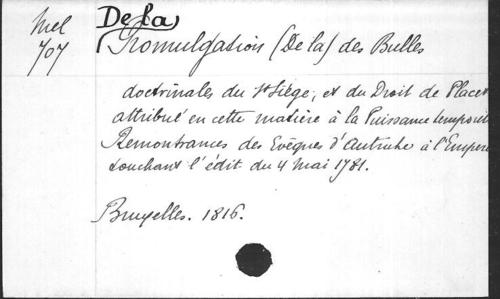 Mel
707
De la
Promulgation (De la) des Bulles
doctrinales du St Siège, et du Droit de Placet
attribué en cette matière à la Puissance temporel
Remontrances des Evêques d'Autriche à l'Empere
touchant l'édit du 4 Mai 1781.
Bruxelles. 1816.